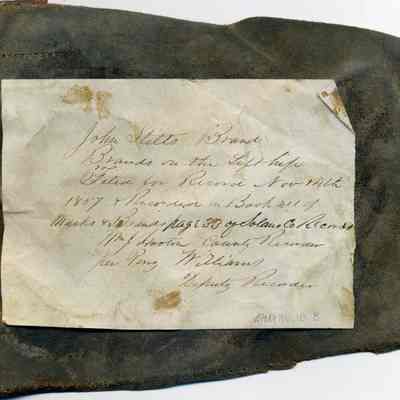 John Stitts Brand
Brands on the Left hip
Filed for Record Nov 14th
1857 & Recorded in Book A of
Marks & Brands page 53 of Solano Co Records
County Recorder
per Williams
Deputy Recorder